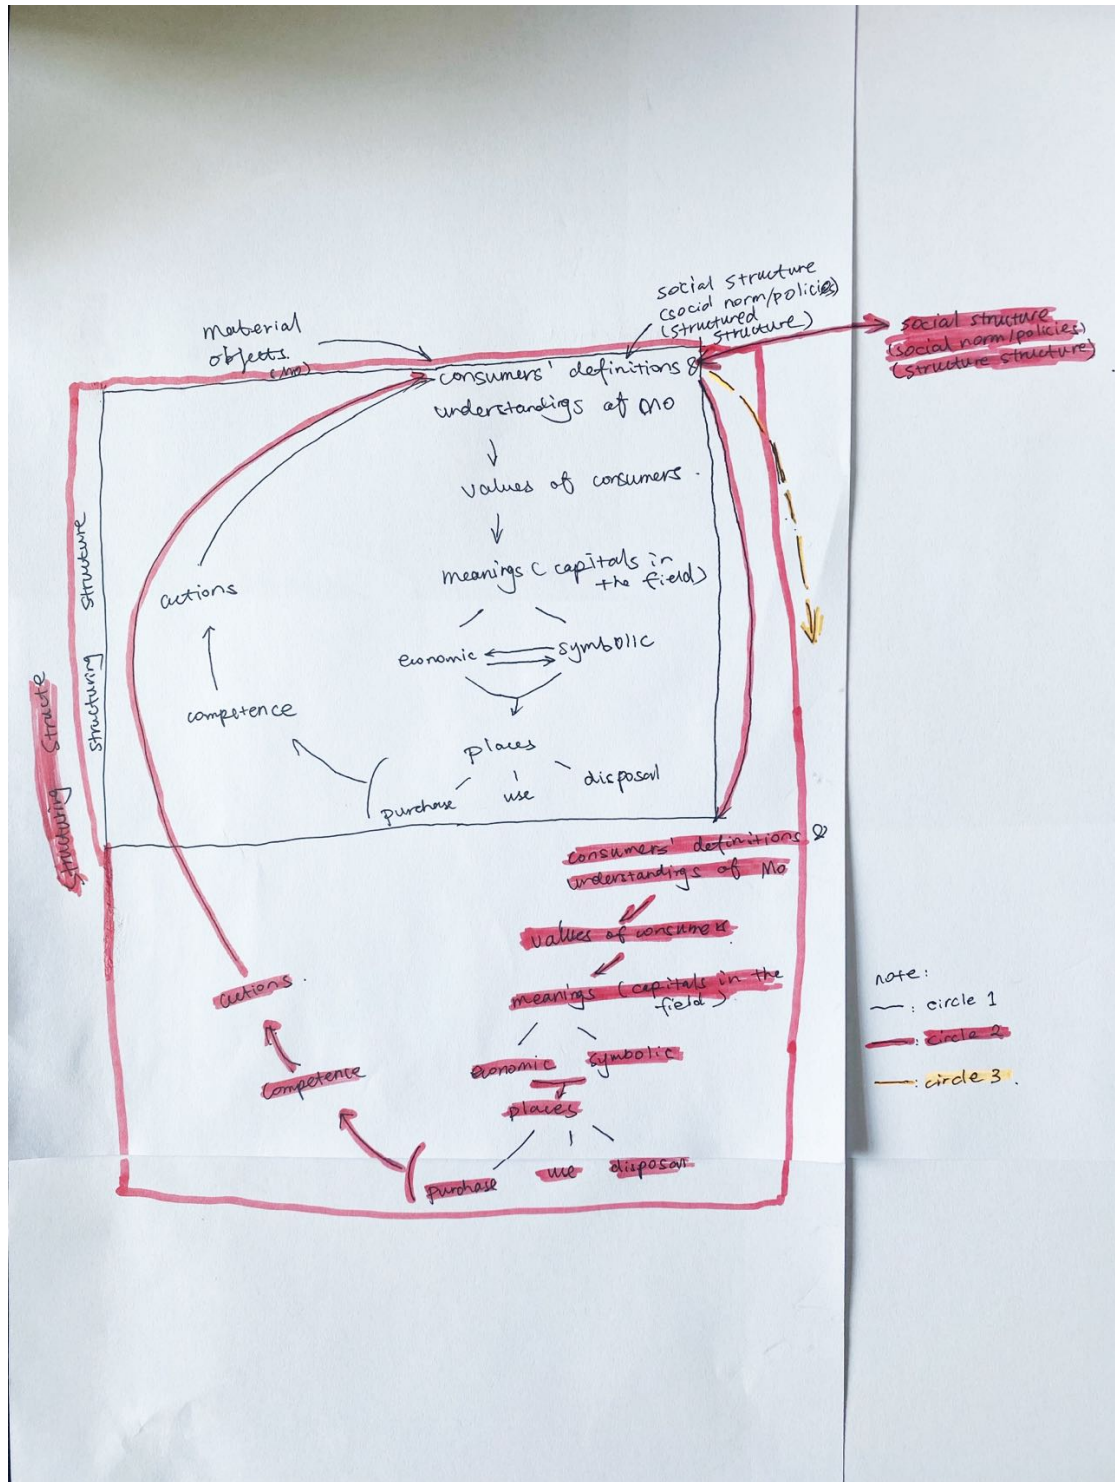 social structure
(social norm/policies)
(structured
structure)
material
objects.
(MO)
social structure
(social norm/policies)
(structure structure)
consumers' definitions &
understandings of MO
values of consumers.
meanings (capitals in
the field)
economic
symbolic
places
purchase
use
disposal
competence
actions
structuring structure
Structuring Structe
consumers' definitions &
understandings of MO
values of consumers.
meanings (capitals in the
field)
economic
symbolic
places
purchase
use
disposal
competence
actions.
note:
: circle 1
: circle 2
: circle 3.